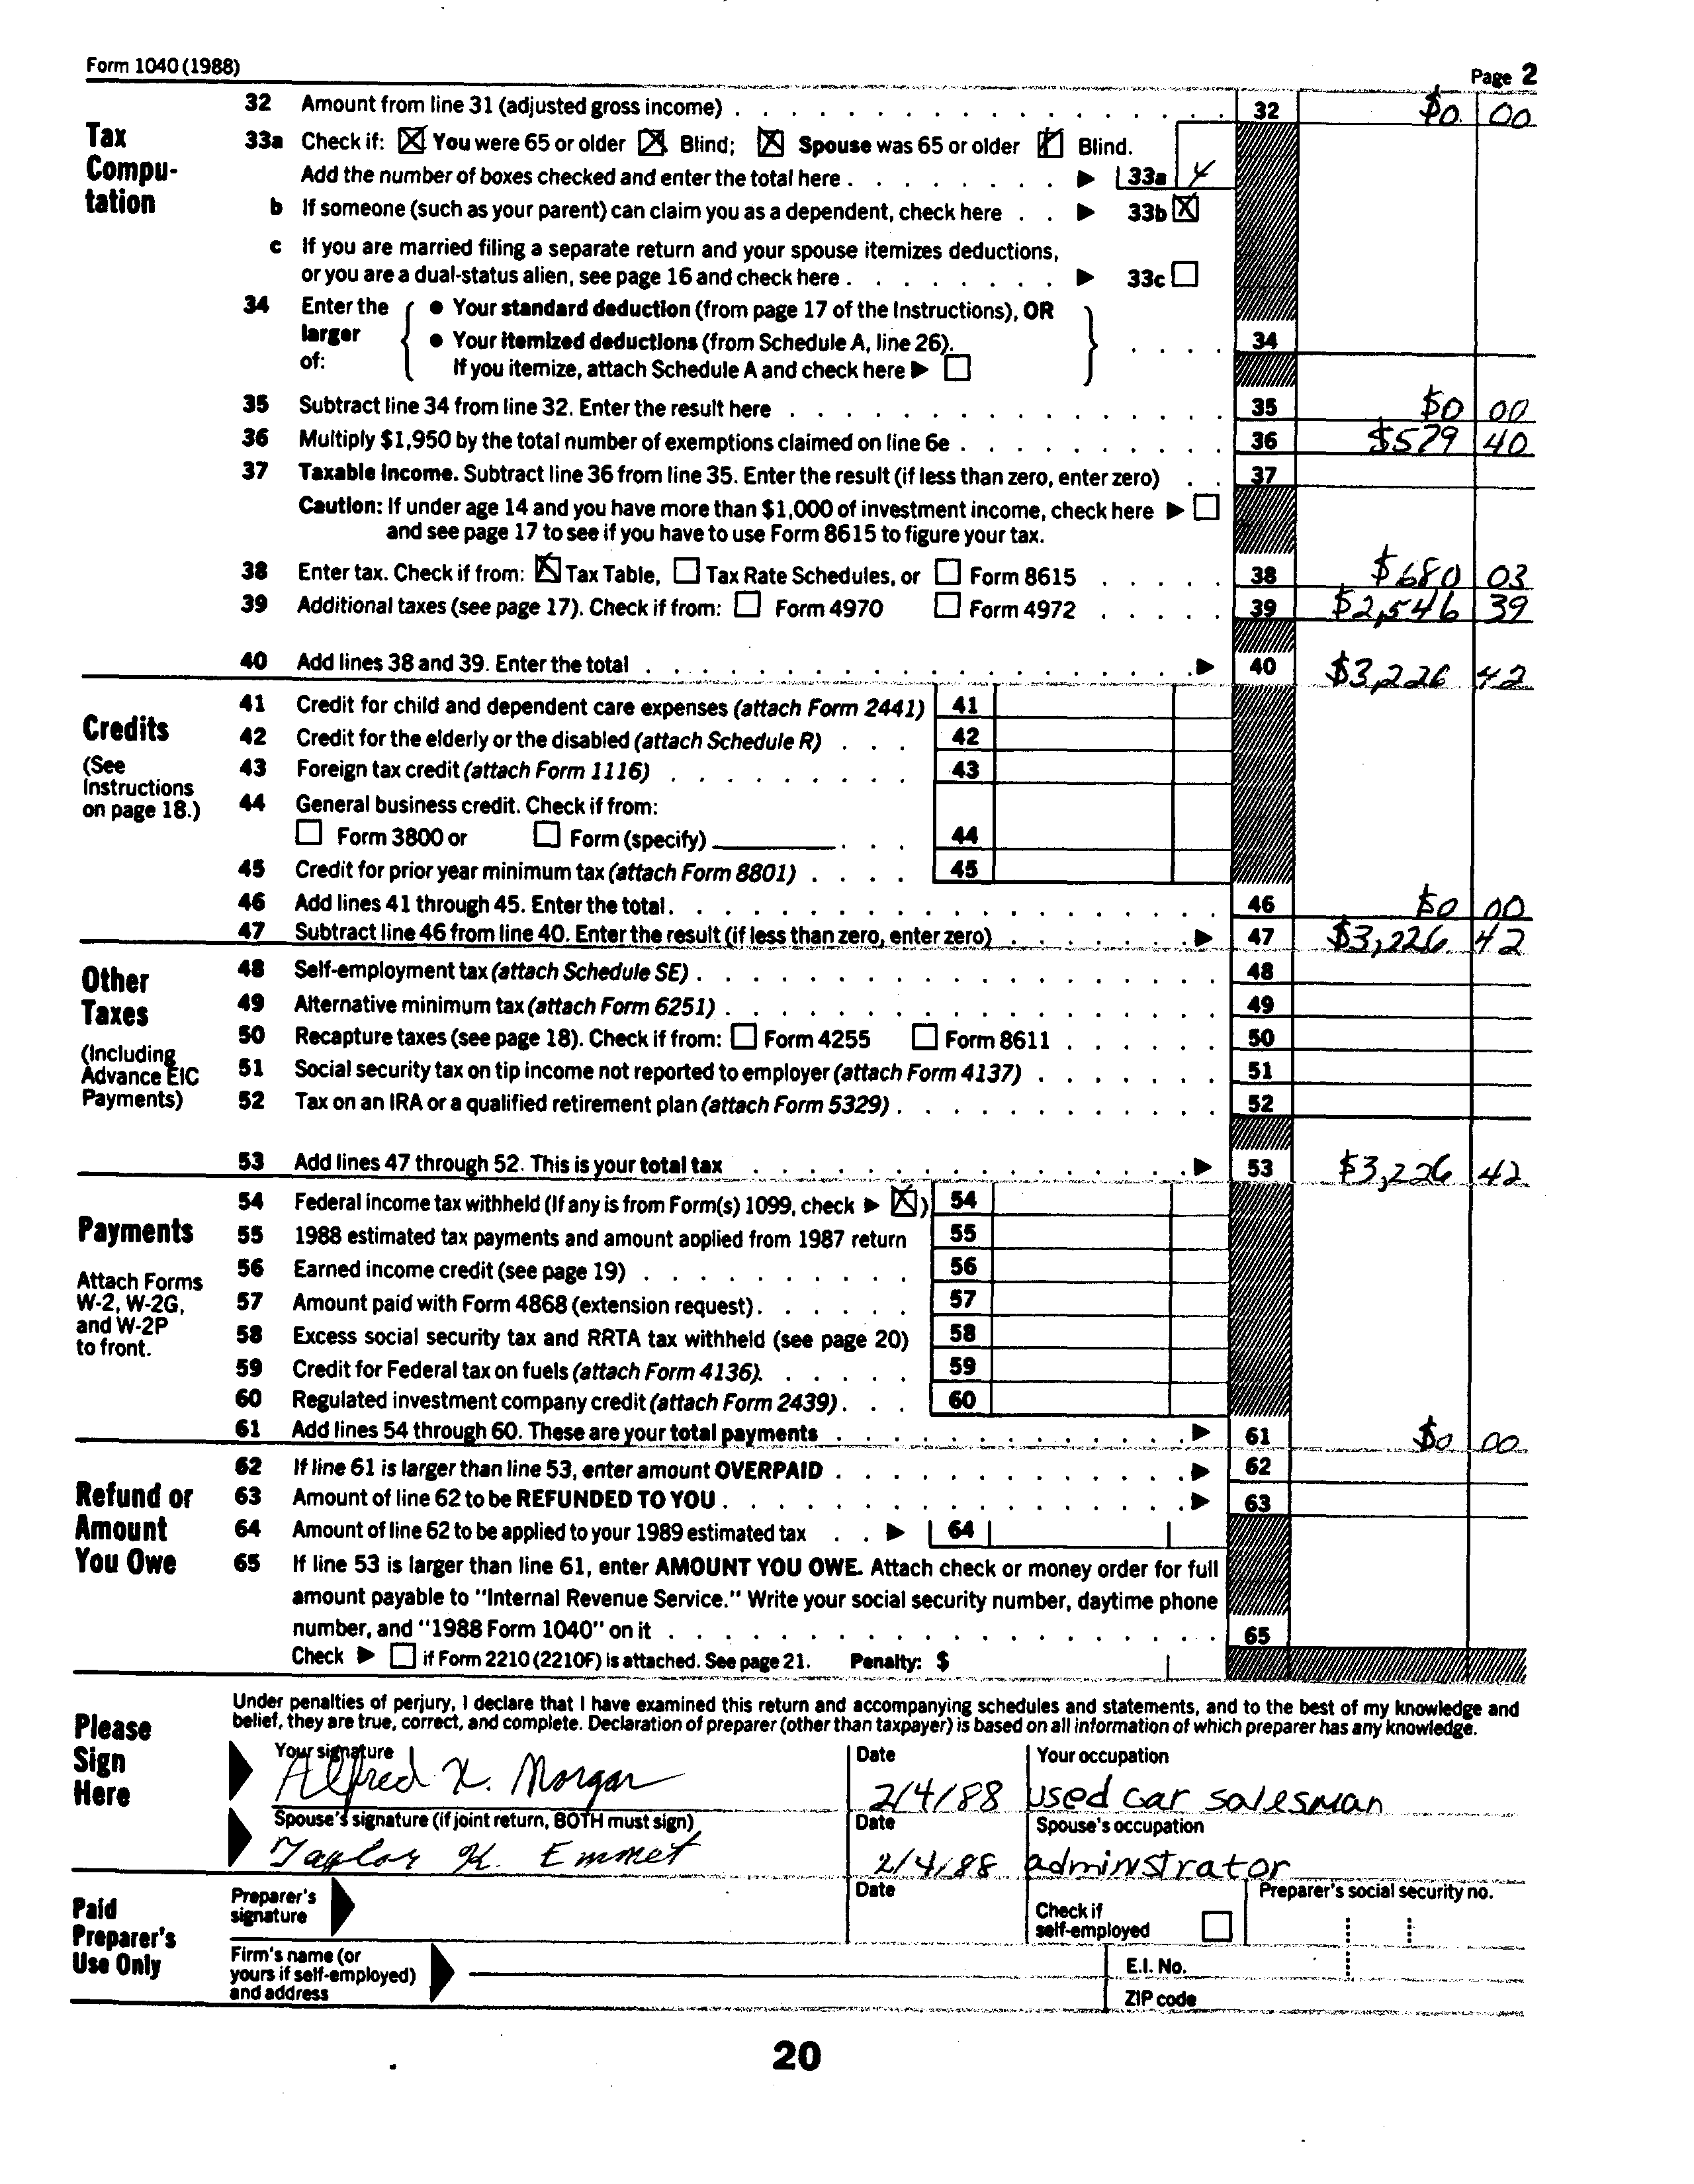 Form 1040 (1988)
Page 2
32 Amount from line 31 (adjusted gross income) . . . 32 $0 00
Tax Compu-tation
33a Check if: ☒ You were 65 or older ☒ Blind; ☒ Spouse was 65 or older ☒ Blind.
Add the number of boxes checked and enter the total here . . . ▶ 33a 4
b If someone (such as your parent) can claim you as a dependent, check here . . ▶ 33b ☒
c If you are married filing a separate return and your spouse itemizes deductions,
or you are a dual-status alien, see page 16 and check here . . . ▶ 33c ☐
34 Enter the larger of: { ● Your standard deduction (from page 17 of the Instructions), OR
● Your itemized deductions (from Schedule A, line 26). } . . . . 34
If you itemize, attach Schedule A and check here ▶ ☐
35 Subtract line 34 from line 32. Enter the result here . . . 35 $0 00
36 Multiply $1,950 by the total number of exemptions claimed on line 6e . . . 36 $579 40
37 Taxable income. Subtract line 36 from line 35. Enter the result (if less than zero, enter zero) . . 37
Caution: If under age 14 and you have more than $1,000 of investment income, check here ▶ ☐
and see page 17 to see if you have to use Form 8615 to figure your tax.
38 Enter tax. Check if from: ☒ Tax Table, ☐ Tax Rate Schedules, or ☐ Form 8615 . . . 38 $680 03
39 Additional taxes (see page 17). Check if from: ☐ Form 4970 ☐ Form 4972 . . . 39 $2,546 39
40 Add lines 38 and 39. Enter the total . . . ▶ 40 $3,226 42
Credits
(See Instructions on page 18.)
41 Credit for child and dependent care expenses (attach Form 2441) 41
42 Credit for the elderly or the disabled (attach Schedule R) . . . 42
43 Foreign tax credit (attach Form 1116) . . . 43
44 General business credit. Check if from:
☐ Form 3800 or ☐ Form (specify) . . . 44
45 Credit for prior year minimum tax (attach Form 8801) . . . . 45
46 Add lines 41 through 45. Enter the total . . . 46 $0 00
47 Subtract line 46 from line 40. Enter the result (if less than zero, enter zero) . . . ▶ 47 $3,226 42
Other Taxes
(Including Advance EIC Payments)
48 Self-employment tax (attach Schedule SE) . . . 48
49 Alternative minimum tax (attach Form 6251) . . . 49
50 Recapture taxes (see page 18). Check if from: ☐ Form 4255 ☐ Form 8611 . . . 50
51 Social security tax on tip income not reported to employer (attach Form 4137) . . . 51
52 Tax on an IRA or a qualified retirement plan (attach Form 5329) . . . 52
53 Add lines 47 through 52. This is your total tax . . . ▶ 53 $3,226 42
Payments
Attach Forms W-2, W-2G, and W-2P to front.
54 Federal income tax withheld (If any is from Form(s) 1099, check ▶ ☒) 54
55 1988 estimated tax payments and amount applied from 1987 return 55
56 Earned income credit (see page 19) . . . 56
57 Amount paid with Form 4868 (extension request) . . . 57
58 Excess social security tax and RRTA tax withheld (see page 20) 58
59 Credit for Federal tax on fuels (attach Form 4136). . . . 59
60 Regulated investment company credit (attach Form 2439) . . . 60
61 Add lines 54 through 60. These are your total payments . . . ▶ 61 $0 00
Refund or Amount You Owe
62 If line 61 is larger than line 53, enter amount OVERPAID . . . ▶ 62
63 Amount of line 62 to be REFUNDED TO YOU . . . ▶ 63
64 Amount of line 62 to be applied to your 1989 estimated tax . . ▶ 64
65 If line 53 is larger than line 61, enter AMOUNT YOU OWE. Attach check or money order for full
amount payable to "Internal Revenue Service." Write your social security number, daytime phone
number, and "1988 Form 1040" on it . . . 65
Check ▶ ☐ if Form 2210 (2210F) is attached. See page 21. Penalty: $
Please Sign Here
Under penalties of perjury, I declare that I have examined this return and accompanying schedules and statements, and to the best of my knowledge and
belief, they are true, correct, and complete. Declaration of preparer (other than taxpayer) is based on all information of which preparer has any knowledge.
Your signature Date Your occupation
Alfred X. Morgan 2/4/88 used car salesman
Spouse's signature (if joint return, BOTH must sign) Date Spouse's occupation
Taylor K. Emmet 2/4/88 adminstrator
Paid Preparer's Use Only
Preparer's signature Date Check if self-employed ☐ Preparer's social security no.
Firm's name (or yours if self-employed) and address
E.I. No.
ZIP code
20